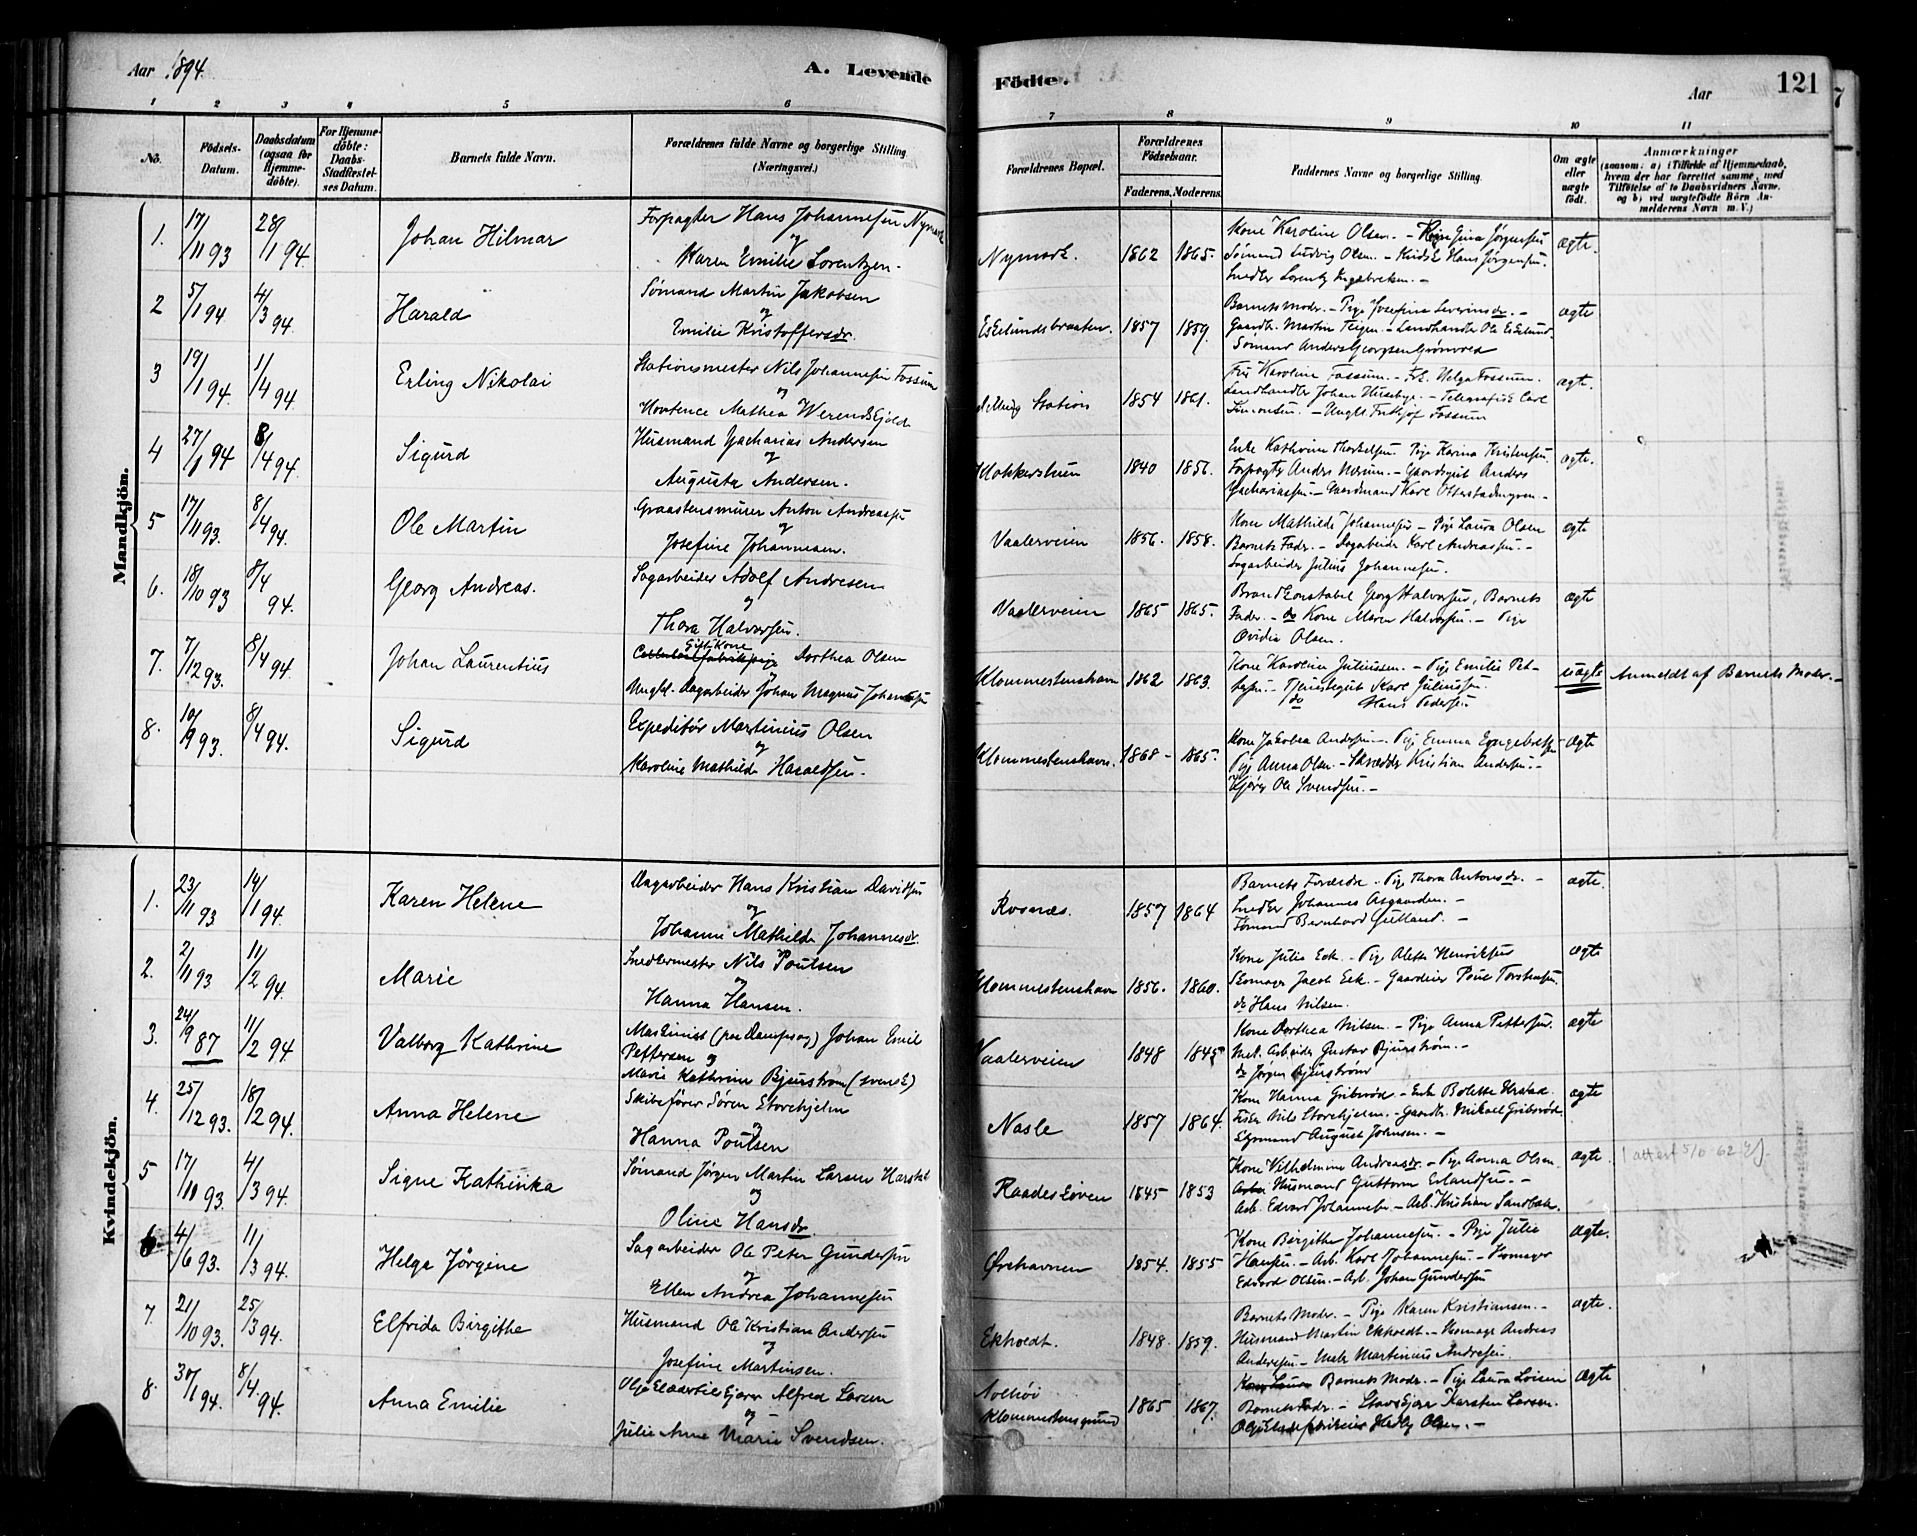 Aar 1894.
A. Levende
Födte.
Aar
121
1 2 3 4 5 6 7 8 9 10 11
No.
Födsels-Datum.
Daabsdatum (ogsaa for Hjemme-döbte).
For Hjemme-döbte: Daabs-Stadfæstel-ses Datum.
Barnets fulde Navn.
Forældrenes fulde Navne og borgerlige Stilling (Næringsvei.)
Forældrenes Bopæl.
Forældrenes Födselsaar.
Faderens. Moderens.
Faddernes Navne og borgerlige Stilling.
Om ægte eller uægte födt.
Anmærkninger
(saasom: a) i Tilfælde af Hjemmedaab, hvem der har forrettet samme, med Tilföielse af to Daabsvidners Navne. og b) ved uægtefödte Börn An-melderens Navn m. V.)
Mandkjön.
1. 17/11 93 28/1 94. Johan Hilmar
Forpagter Hans Johannesen Nymark
og
Karen Emilie Lorentzen.
Nymark. 1862 1865.
Kone Karoline Olsen. Gina Jørgensen
Sømand Ludvig Olsen. Hans Jørgensen.
Snedker Lorentz Ingebretsen.
ægte.
2 5/1 94 4/3 94. Harald
Sømand Martin Jakobsen
og
Emilie Kristoffersdr.
Eskelundsbraaten. 1857 1859.
Barnets Moder. Pige Josefine Severinsdr.
Gaardbr. Martin Teigen. Landhandler Ole Eskelund
Sømand Anders Georgsen Grønvold
ægte
3 19/1 94. 1/4 94. Erling Nikolai
Stationsmester Nils Johannesen Fossum
og
Hortence Mathea Werenskjold
Station 1854 1861.
Fru Karoline Fossum. Frk. Helga Fossum.
Landhandler Johan Huseby. Telegrafist Carl
Simonsen. Ungk. Fritjof Fossum
ægte.
4 27/1 94 8/4 94. Sigurd
Husmand Zacharias Andersen
og
Augusta Andersen.
Klokkerstuen 1840 1856.
Enke Kathrine Thorkelsen. Pige Karina Kristensen.
Forpagter Anders Nærum. Gaardsgut Anders
Zachariassen. Gaardmand Karl Otterstadmyren
ægte.
5 17/11 93. 8/4 94. Ole Martin
Graastensmurer Anton Andreassen
og
Josefine Johannesen.
Vaalerveien 1856. 1858.
Kone Mathilde Johannesen. Pige Laura Olsen
Barnets Fader. Dagarbeider Karl Andreassen.
Sagarbeider Julius Johannesen.
ægte
6. 18/10 93 8/4 94. Georg Andreas.
Sagarbeider Adolf Andresen
og
Thora Halvorsen.
Vaalerveien 1865 1865.
Brandkonstabel Georg Halvorsen, Barnets
Fader. do Kone Maren Halvorsen. Pige
Ovidia Olsen.
ægte
7. 7/12 93. 8/4 94. Johan Laurentius
Gift Kone
Cellulosefabrikpige Dorthea Olsen
og
Ungk. Dagarbeider Johan Magnus Johannesen
Klommestenshavn 1862 1863.
Kone Karoline Juliussen. Pige Emilie Pet-
tersen. Tjenestegut Karl Juliussen.
do Hans Pedersen.
uægte Anmeldt af Barnets Moder.
8. 10/9 93. 8/4 94. Sigurd
Expeditør Martinius Olsen
og
Karoline Mathilde Haraldsen.
Klommestenshavn. 1868 1865.
Kone Jakobea Andersen. Pige Emma Engebretsen
Pige Anna Olsen. Skrædder Kristian Andersen.
Ole Svendsen.
ægte
Kvindekjön.
1. 23/11 93 14/1 94. Karen Helene
Dagarbeider Hans Kristian Davidsen
og
Johanne Mathilde Johannesdr.
Rosnæs. 1857 1864
Barnets Forældre. Pige Thora Antonsdr.
Snedker Johannes Asgaarden.
Sømand Bernhard Gulland.
ægte.
2. 2/11 93 11/2 94. Marie
Snedkermester Nils Poulsen
og
Hanna Hansen.
Klommestenshavn 1856. 1860.
Kone Julia Eek. Pige Alette Henriksen
Skomager Jacob Eek. Gaardeier Poul Torstensen.
do Hans Nilsen.
ægte
3. 24/9 87 11/2 94 Valborg Kathrine
Maskinist (paa Dampsag) Johan Emil
Pettersen og
Marie Kathrine Bjurstrøm (svensk)
Vaalerveien 1848 1845
Kone Dorthea Nilsen. Pige Anna Pettersen.
Mek. Arbeider Gustav Bjurstrøm.
do Jørgen Bjurstrøm
ægte
4. 25/12 93. 18/2 94. Anna Helene
Skibsfører Søren Storehjelm
og
Hanna Poulsen
Nasle 1857 1864.
Kone Hanna Gibsrød. Enke Bolette
Nils Storehjelm. Gaardbr. Mikael Gibsrød
Styrmand August Johnsen.
ægte
5 17/10 93. 4/3 94. Signe Kathinka
Sømand Jørgen Martin Larsen
og
Oline Hansdr.
1845 1853
Kone Vilhelmine Andreasdr. Pige Anna Olsen.
Husmand Guttorm Erlandsen.
Arb. Edvard Johannesen. Arb. Kristian Sandbakk.
ægte. attest 5/10 62
6 4/6 93. 11/3 94. Helga Jörgine
Sagarbeider Ole Peter Gundersen
og
Ellen Andrea Johannesen
Ørehavnen 1854. 1855
Kone Birgithe Johannesen. Pige Julie
Hansen. Arb. Karl Johannesen. Skomager
Edvard Olsen. Arb. Johan Gundersen
ægte.
7 21/10 93. 25/3 94. Elfrida Birgithe
Husmand Ole Kristian Andersen
og
Josefine Martinsen.
Ekholdt. 1848. 1859.
Barnets Moder. Pige Karen Kristiansen.
Husmand Martin Ekholdt. Skomager Andreas
Andersen. Martinius Andresen.
ægte.
8 30/1 94. 8/4 94. Anna Emilie
Alfred Larsen
og
Julie Anne Marie Svendsen.
Solhøi
Klommestensgrund 1865 1867.
Barnets Moder. Pige Laura Larsen
Barnets Fader. Karsten Larsen.
Hedly Olsen.
ægte